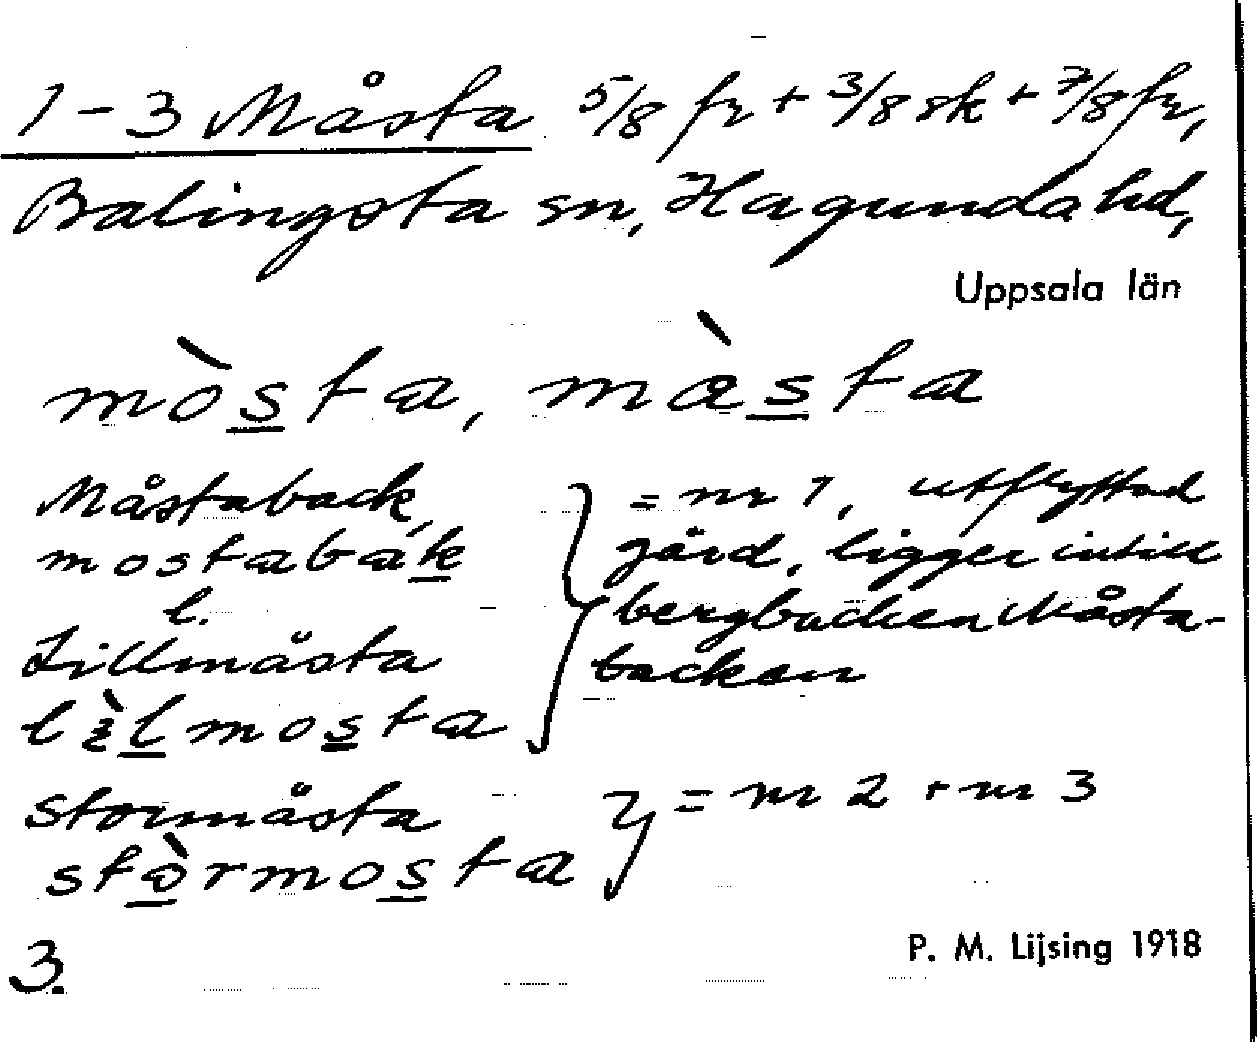 1-3 Måsta 5/8 fr + 3/8 sk + 7/8 fr,
Balingsta sn, Hagunda hd,
Uppsala län
mòsta, màsta
Måstaback, = nr 1, utflyttad
mostabák gård, ligger intill
l. bergbacken Måsta-
Lillmåsta backen
lìlmosta
Stormåsta = nr 2 + nr 3
stòrmosta
3.
P. M. Lijsing 1918